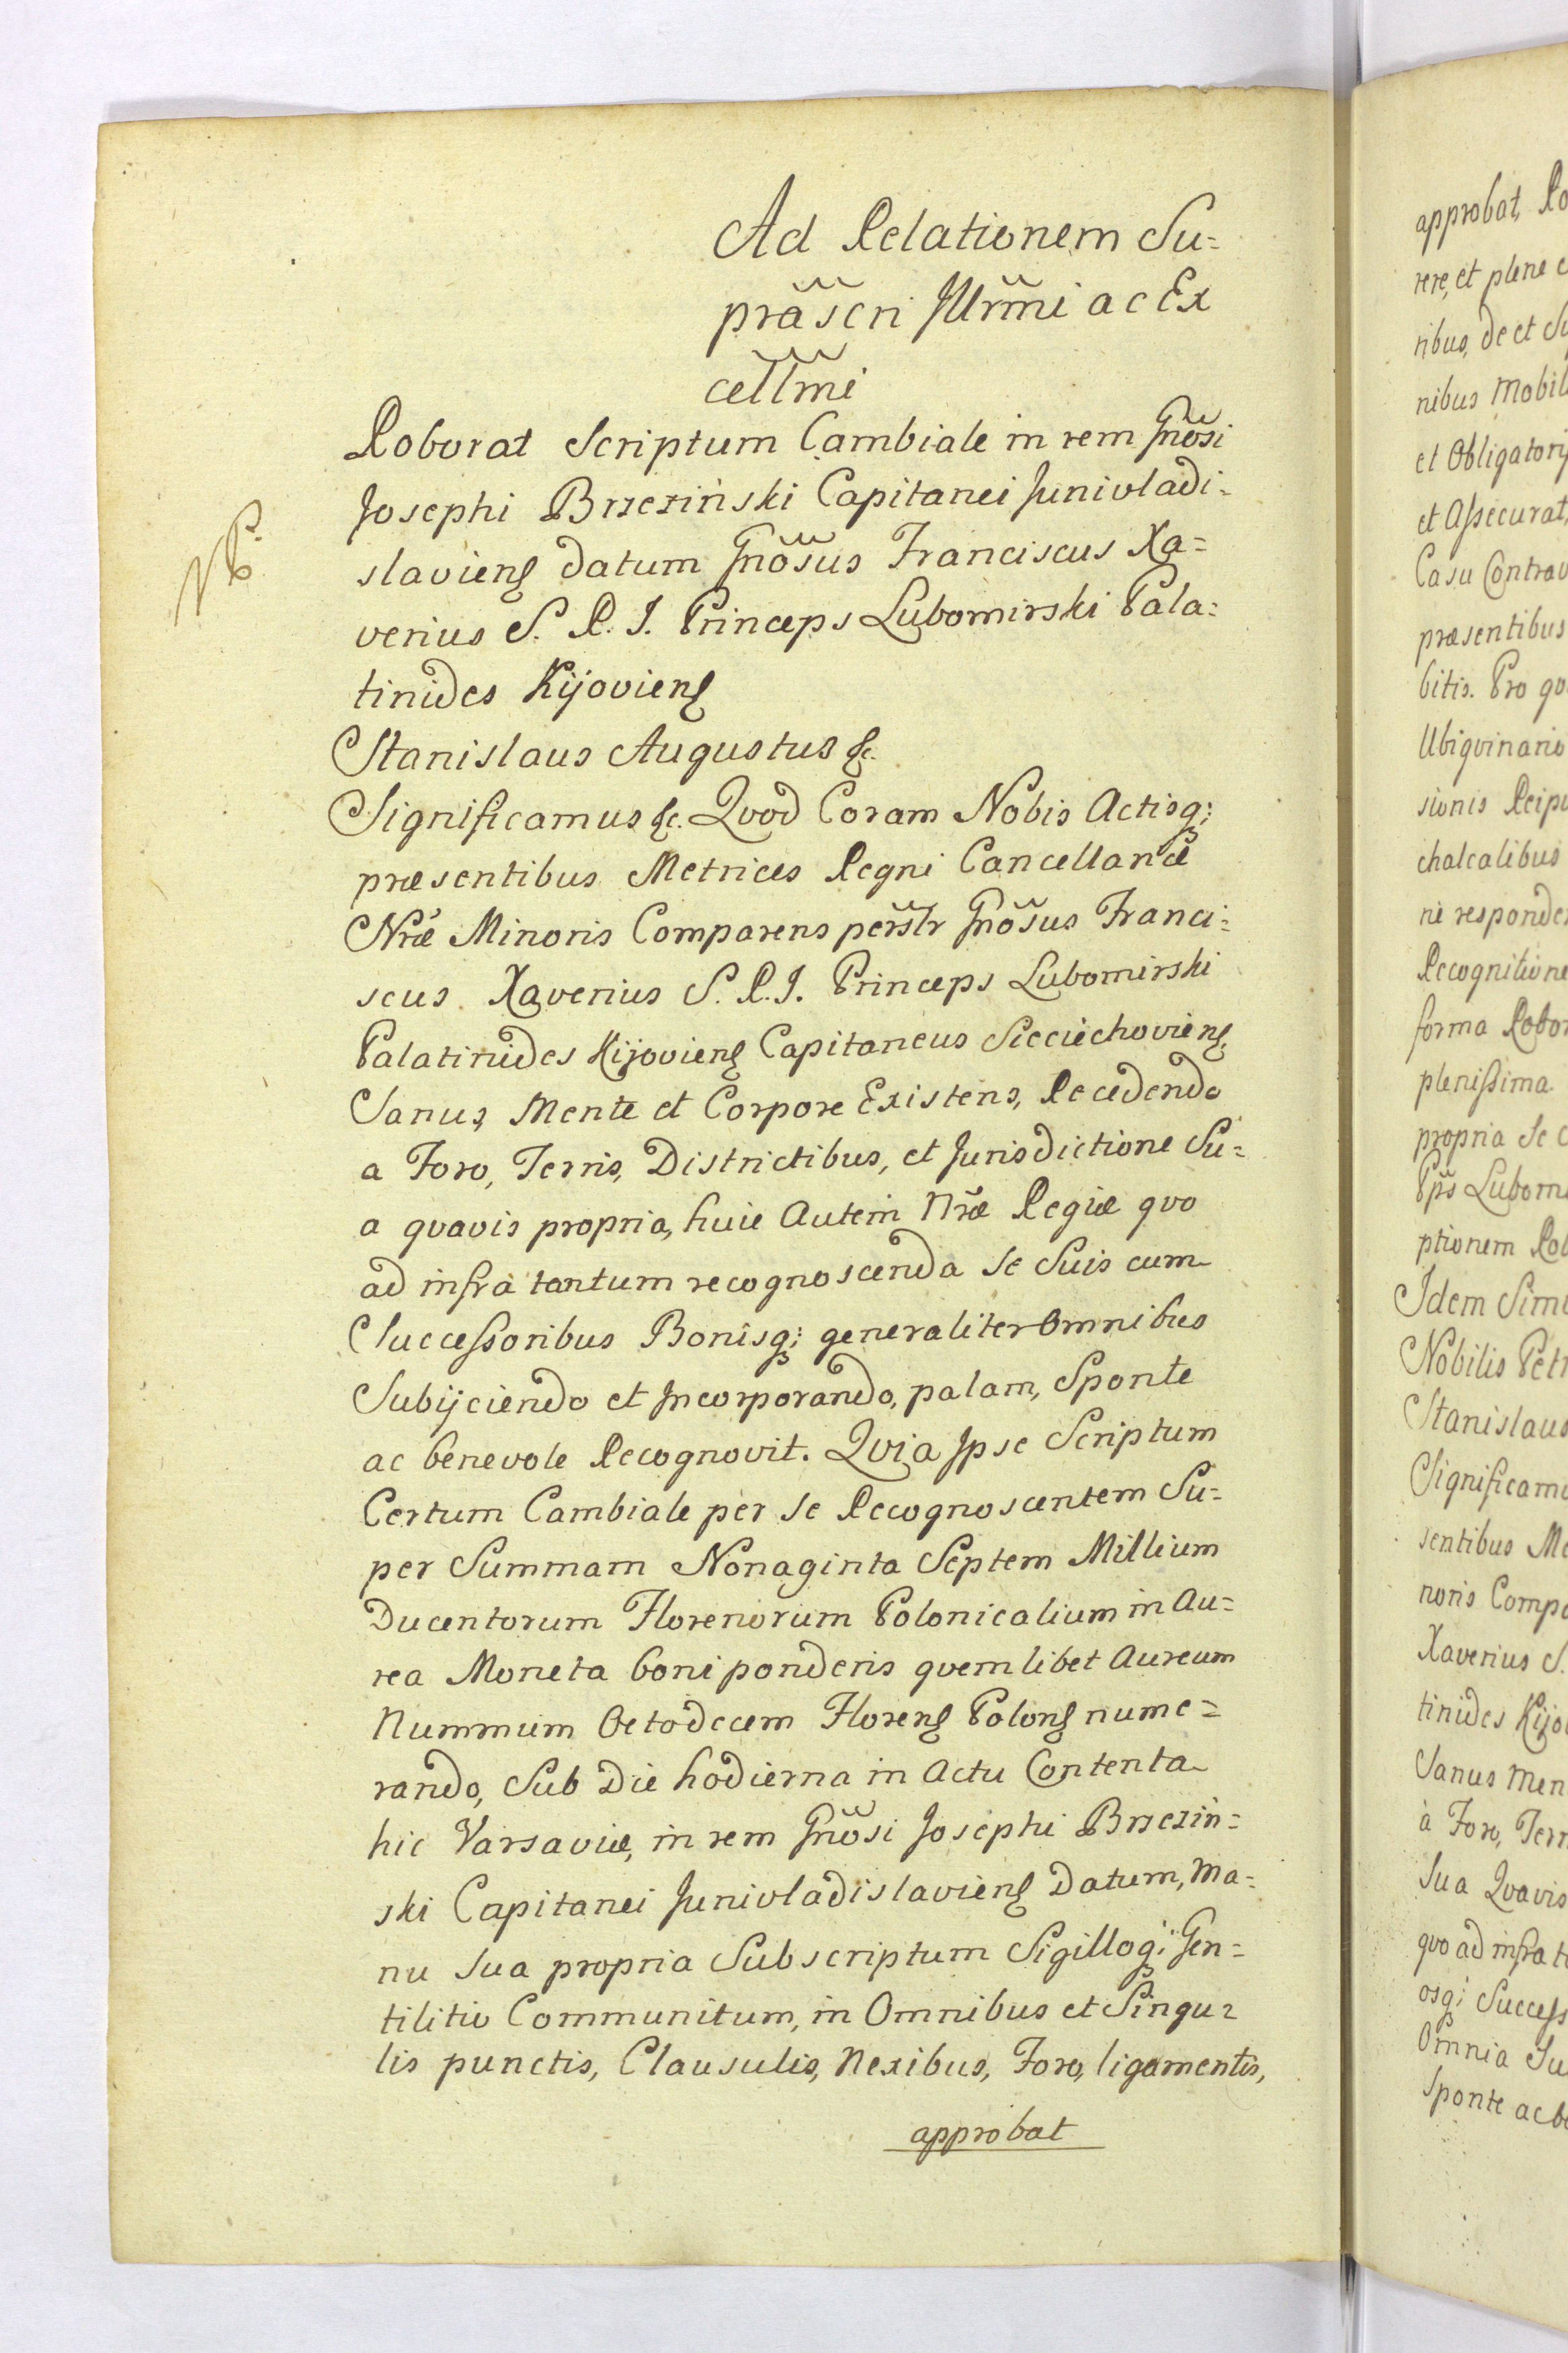 Ad Relationem Su=
prãscri Jllr̃mi ac Ex
cell̃mi
Roborat Scriptum Cambiale in rem Gnõsi
Josephi Brzezinski Capitanei Junivladi=
slaviens Datum Gnõsus Franciscus Xa=
verius S. R. J. Princeps Lubomirski Pala=
tinides Kijoviens
Stanislaus Augustus &c.
Significamus &c. Qvod Coram Nobis Actisq;
præsentibus Metrices Regni Cancellariæ
Nræ Minoris Comparens persl̃r Gnõsus Franci=
scus Xaverius S. R. J. Princeps Lubomirski
Palatinides Kijoviens Capitaneus Sieciechoviens,
Sanus Mente et Corpore Existens, Recedendo
a Foro, Terris, Districtibus, et Jurisdictione Su=
a qvavis propria, huic Autem Nr̃æ Regiæ qvo
ad infra tantum recognoscenda Se Suis cum
Successoribus Bonisq; generaliter Omnibus
Subijciendo et Jncorporando, palam, Sponte
ac benevole Recognovit. Qvia Jpse Scriptum
Certum Cambiale per Se Recognoscentem Su=
per Summam Nonaginta Septem Millium
Ducentorum Florenorum Polonicalium in Au=
rea Moneta boni ponderis qvemlibet Aureum
Nummum Octodecem Florens Polons nume=
rando, Sub Die hodierna in Actu Contenta
hic Varsaviæ, in rem Gnõsi Josephi Brzezin=
ski Capitanei Junivladislaviens Datum, Ma=
nu Sua propria Subscriptum Sigilloq; Gen=
tilitio Communitum, in Omnibus et Singu=
lis punctis, Clausulis, Nexibus, Foro, ligamentis,
approbat
approbat,
rere, et plene
ribus, de et
nibus Mobil
et Obligatorij
et Assecurat,
Casu Contrav
præsentibus
bitis. Pro qv
Ubiqvinario
sionis Reipu
chalcalibus
ni responde
Recognitione
forma Robor
plenissima
propria Se
Pp̃s Lubomi
ptionem Rob
Jdem Simi
Nobilis Petr
Stanislaus
Significamu
sentibus Me
noris Compa
Xaverius S.
tinides Kijo
Sanus Men
à Foro, Terr
Sua Qvavis
qvo ad infra t
osq; Success
Omnia Su
Sponte ac be